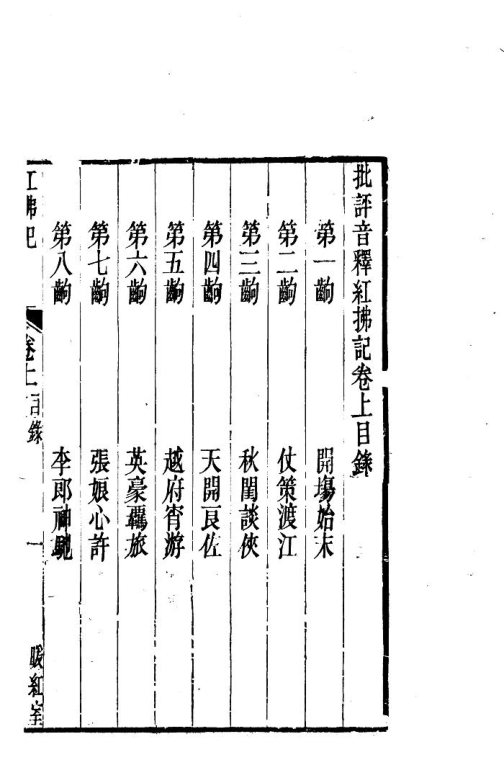 批評音釋紅拂記卷上目錄
第一齣 開場始末
第二齣 仗策渡江
第三齣 秋閨談俠
第四齣 天開良佐
第五齣 越府宵游
第六齣 英豪羈旅
第七齣 張娘心許
第八齣 李郎神馳
紅拂記 卷上目錄 一 暖紅室